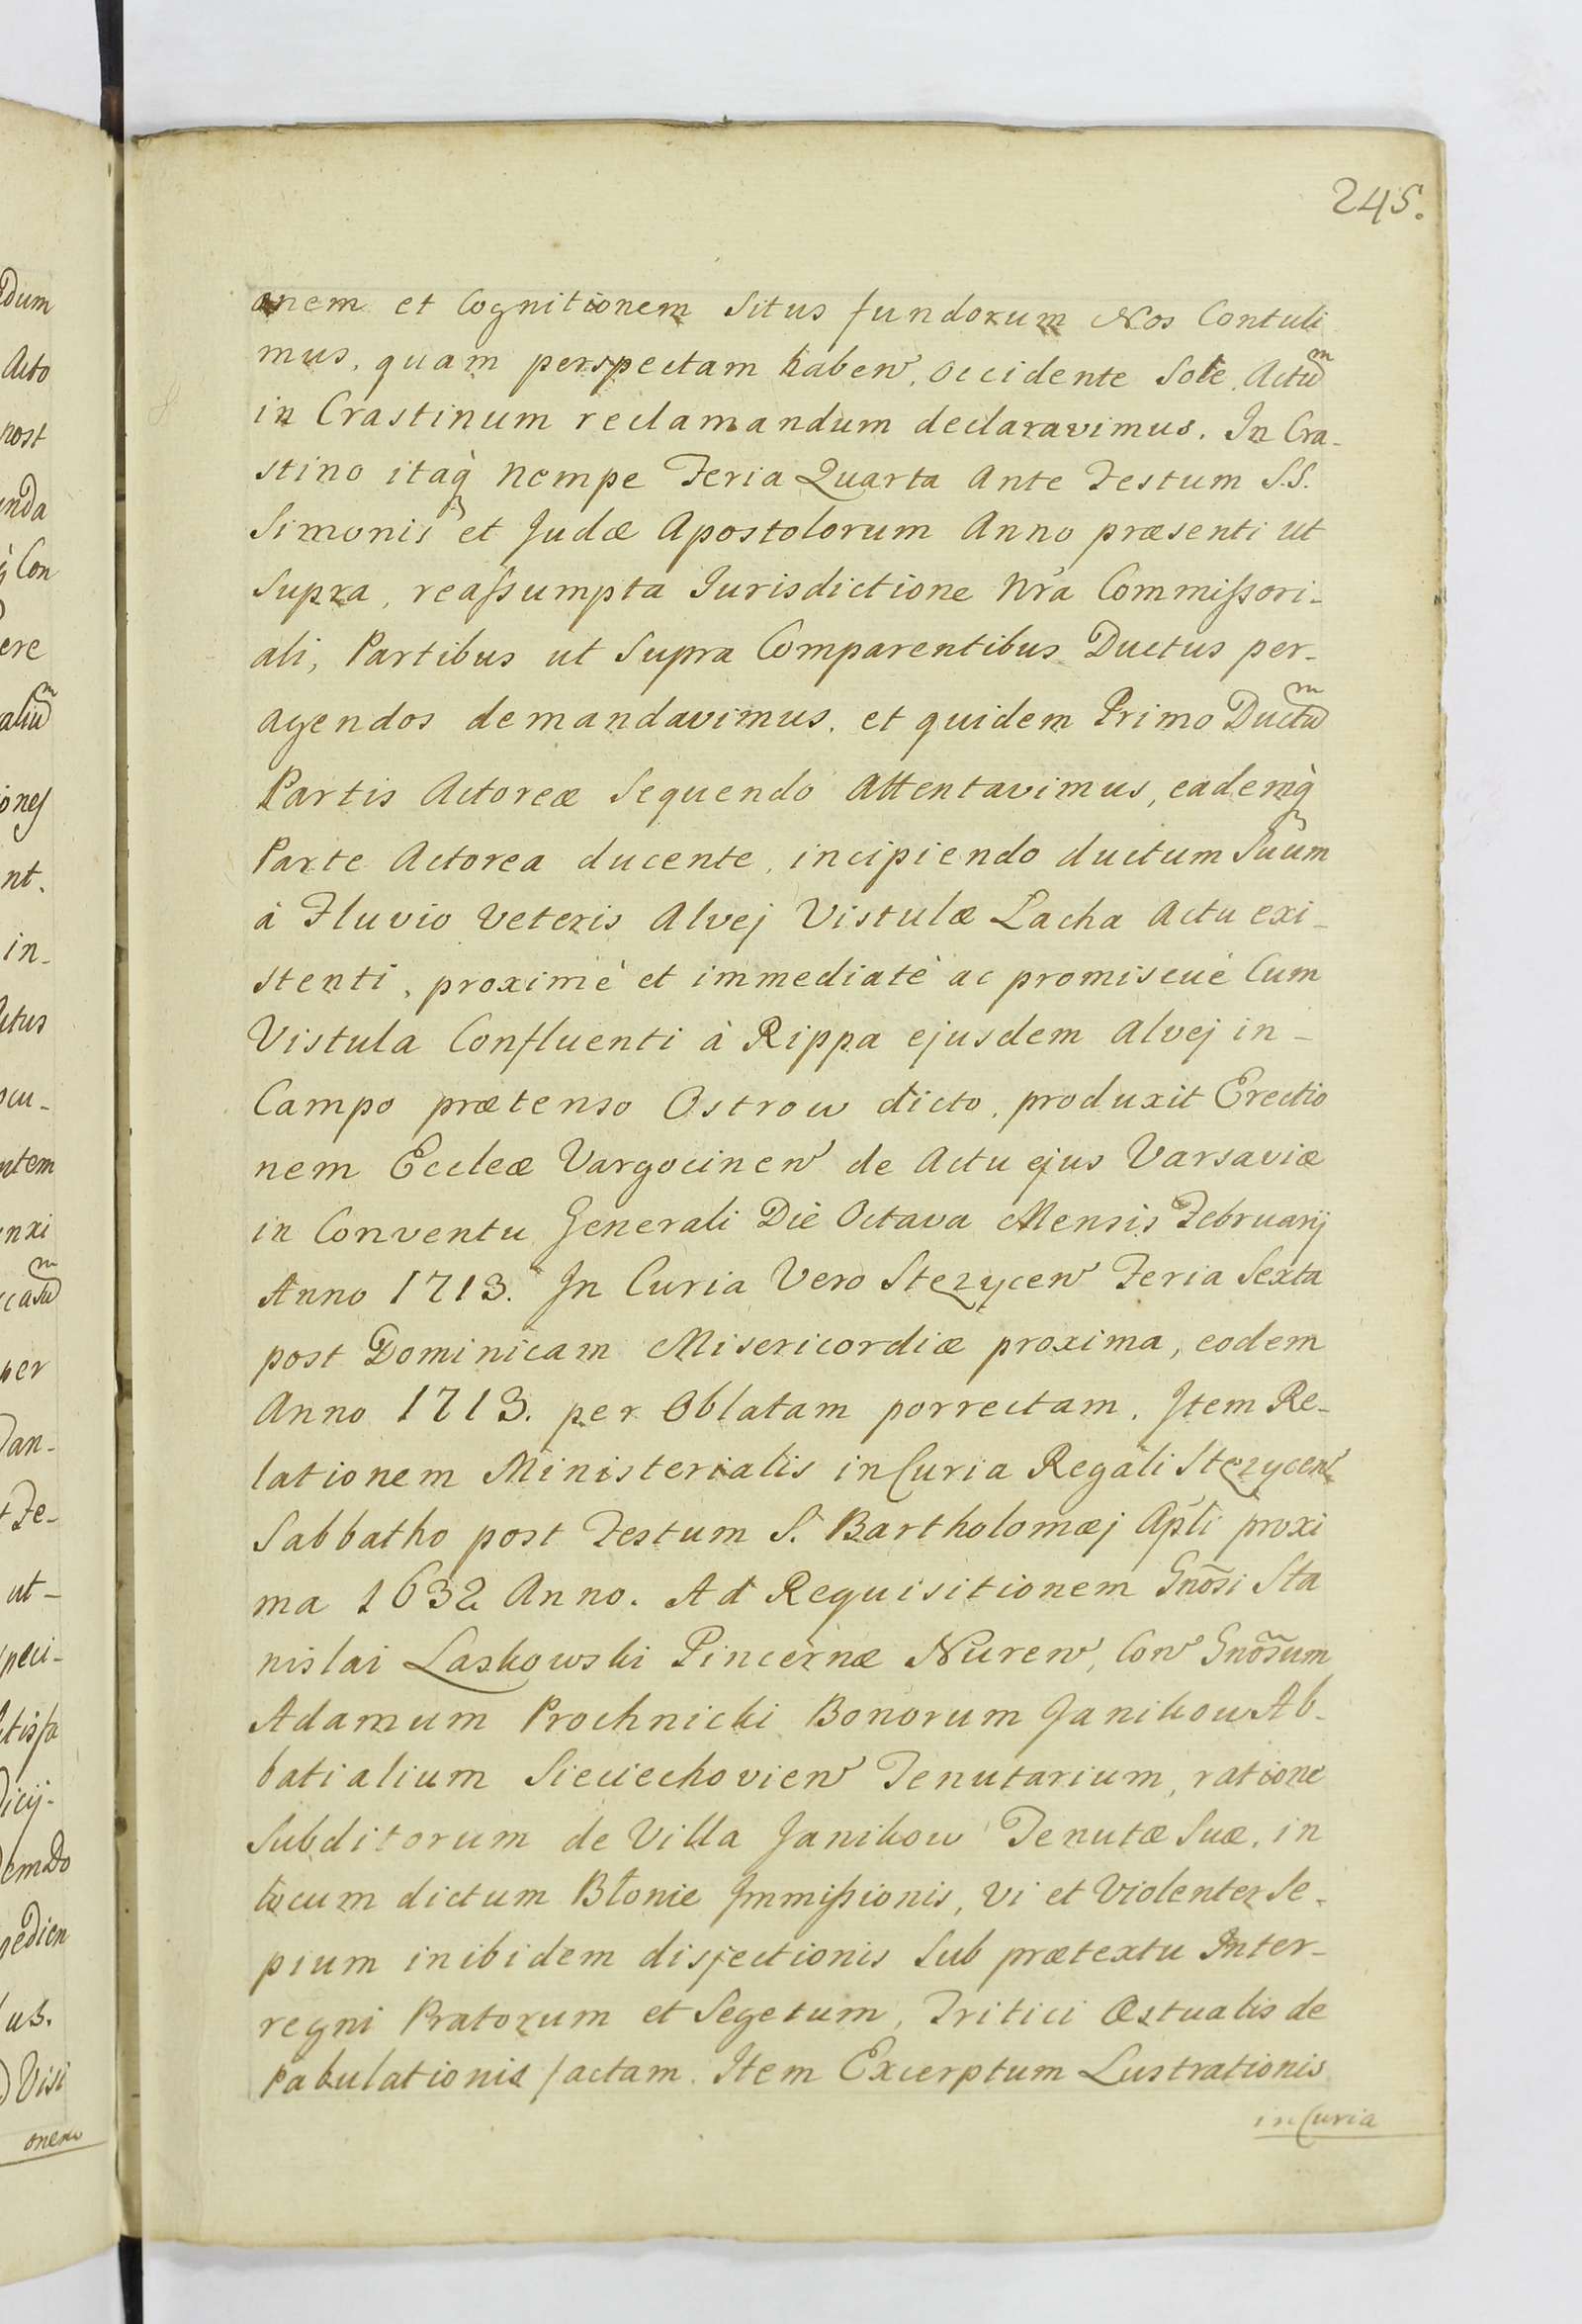 245.
onem et Cognitionem Situs fundorum Nos Contuli
mus, quam perspectam haben̄, occidente Sole, Actūm
in Crastinum reclamandum declaravimus. In Cra-
stino itaq̀ Nempe Feria Quarta Ante Festum S.S.
Simonis et Judæ Apostolorum Anno præsenti ut
Supra, reaſsumpta Jurisdictione Nr̃a Commiſsori-
ali, Partibus ut Supra Comparentibus Ductus per-
agendos demandavimus. et quidem Primo Ductūm
Partis Actoreæ Sequendo Attentavimus, eademq̀
Parte Actorea ducente, incipiendo ductum Suum
à Fluvio Veteris Alvej Vistulæ Łacha Actu exi-
stenti, proximè et immediatè ac promiscuè Cum
Vistula Confluenti à Rippa ejusdem Alvej in-
Campo prætenso Ostrow dicto, produxit Erectio
nem Eccleæ Vargocinen̄ de Actu ejus Varsaviæ
in Conventu Generali Die Octava Mensis Februarij
Anno 1713. In Curia Vero Stezycen̄ Feria Sexta
post Dominicam Misericordiæ proxima, eodem
Anno 1713. per Oblatam porrectam. Item Re-
lationem Ministerialis in Curia Regali Stezycen̄
Sabbatho post Festum S. Bartholomæj Apl̃i proxi
ma 1632 Anno. Ad Requisitionem Gnõsi Sta
nislai Laskowski Pincernæ Nuren̄, Con̄ Gnõsum
Adamum Prochnicki Bonorum Janikow Ab-
batialium Sieciechovien̄ Tenutarium, ratione
Subditorum de Villa Janikow Tenutæ Suæ, in
locum dictum Błonie Immiſsionis, Vi et Violenter Se-
pium inibidem disjectionis Sub prætextu Inter-
regni Pratorum et Segetum, Tritici Æstualis de
Pabulationis factam. Item Excerptum Lustrationis
in Curia
dum
Acto
post
unda
q̀ Con
ere
aliūm
iones
nt.
in-
utus
ocu-
ntem
nxi
ccasūm
per
Dan-
t Fe-
ut-
peci-
tisfa
icij-
em Do
pedien
us.
Visi
onem